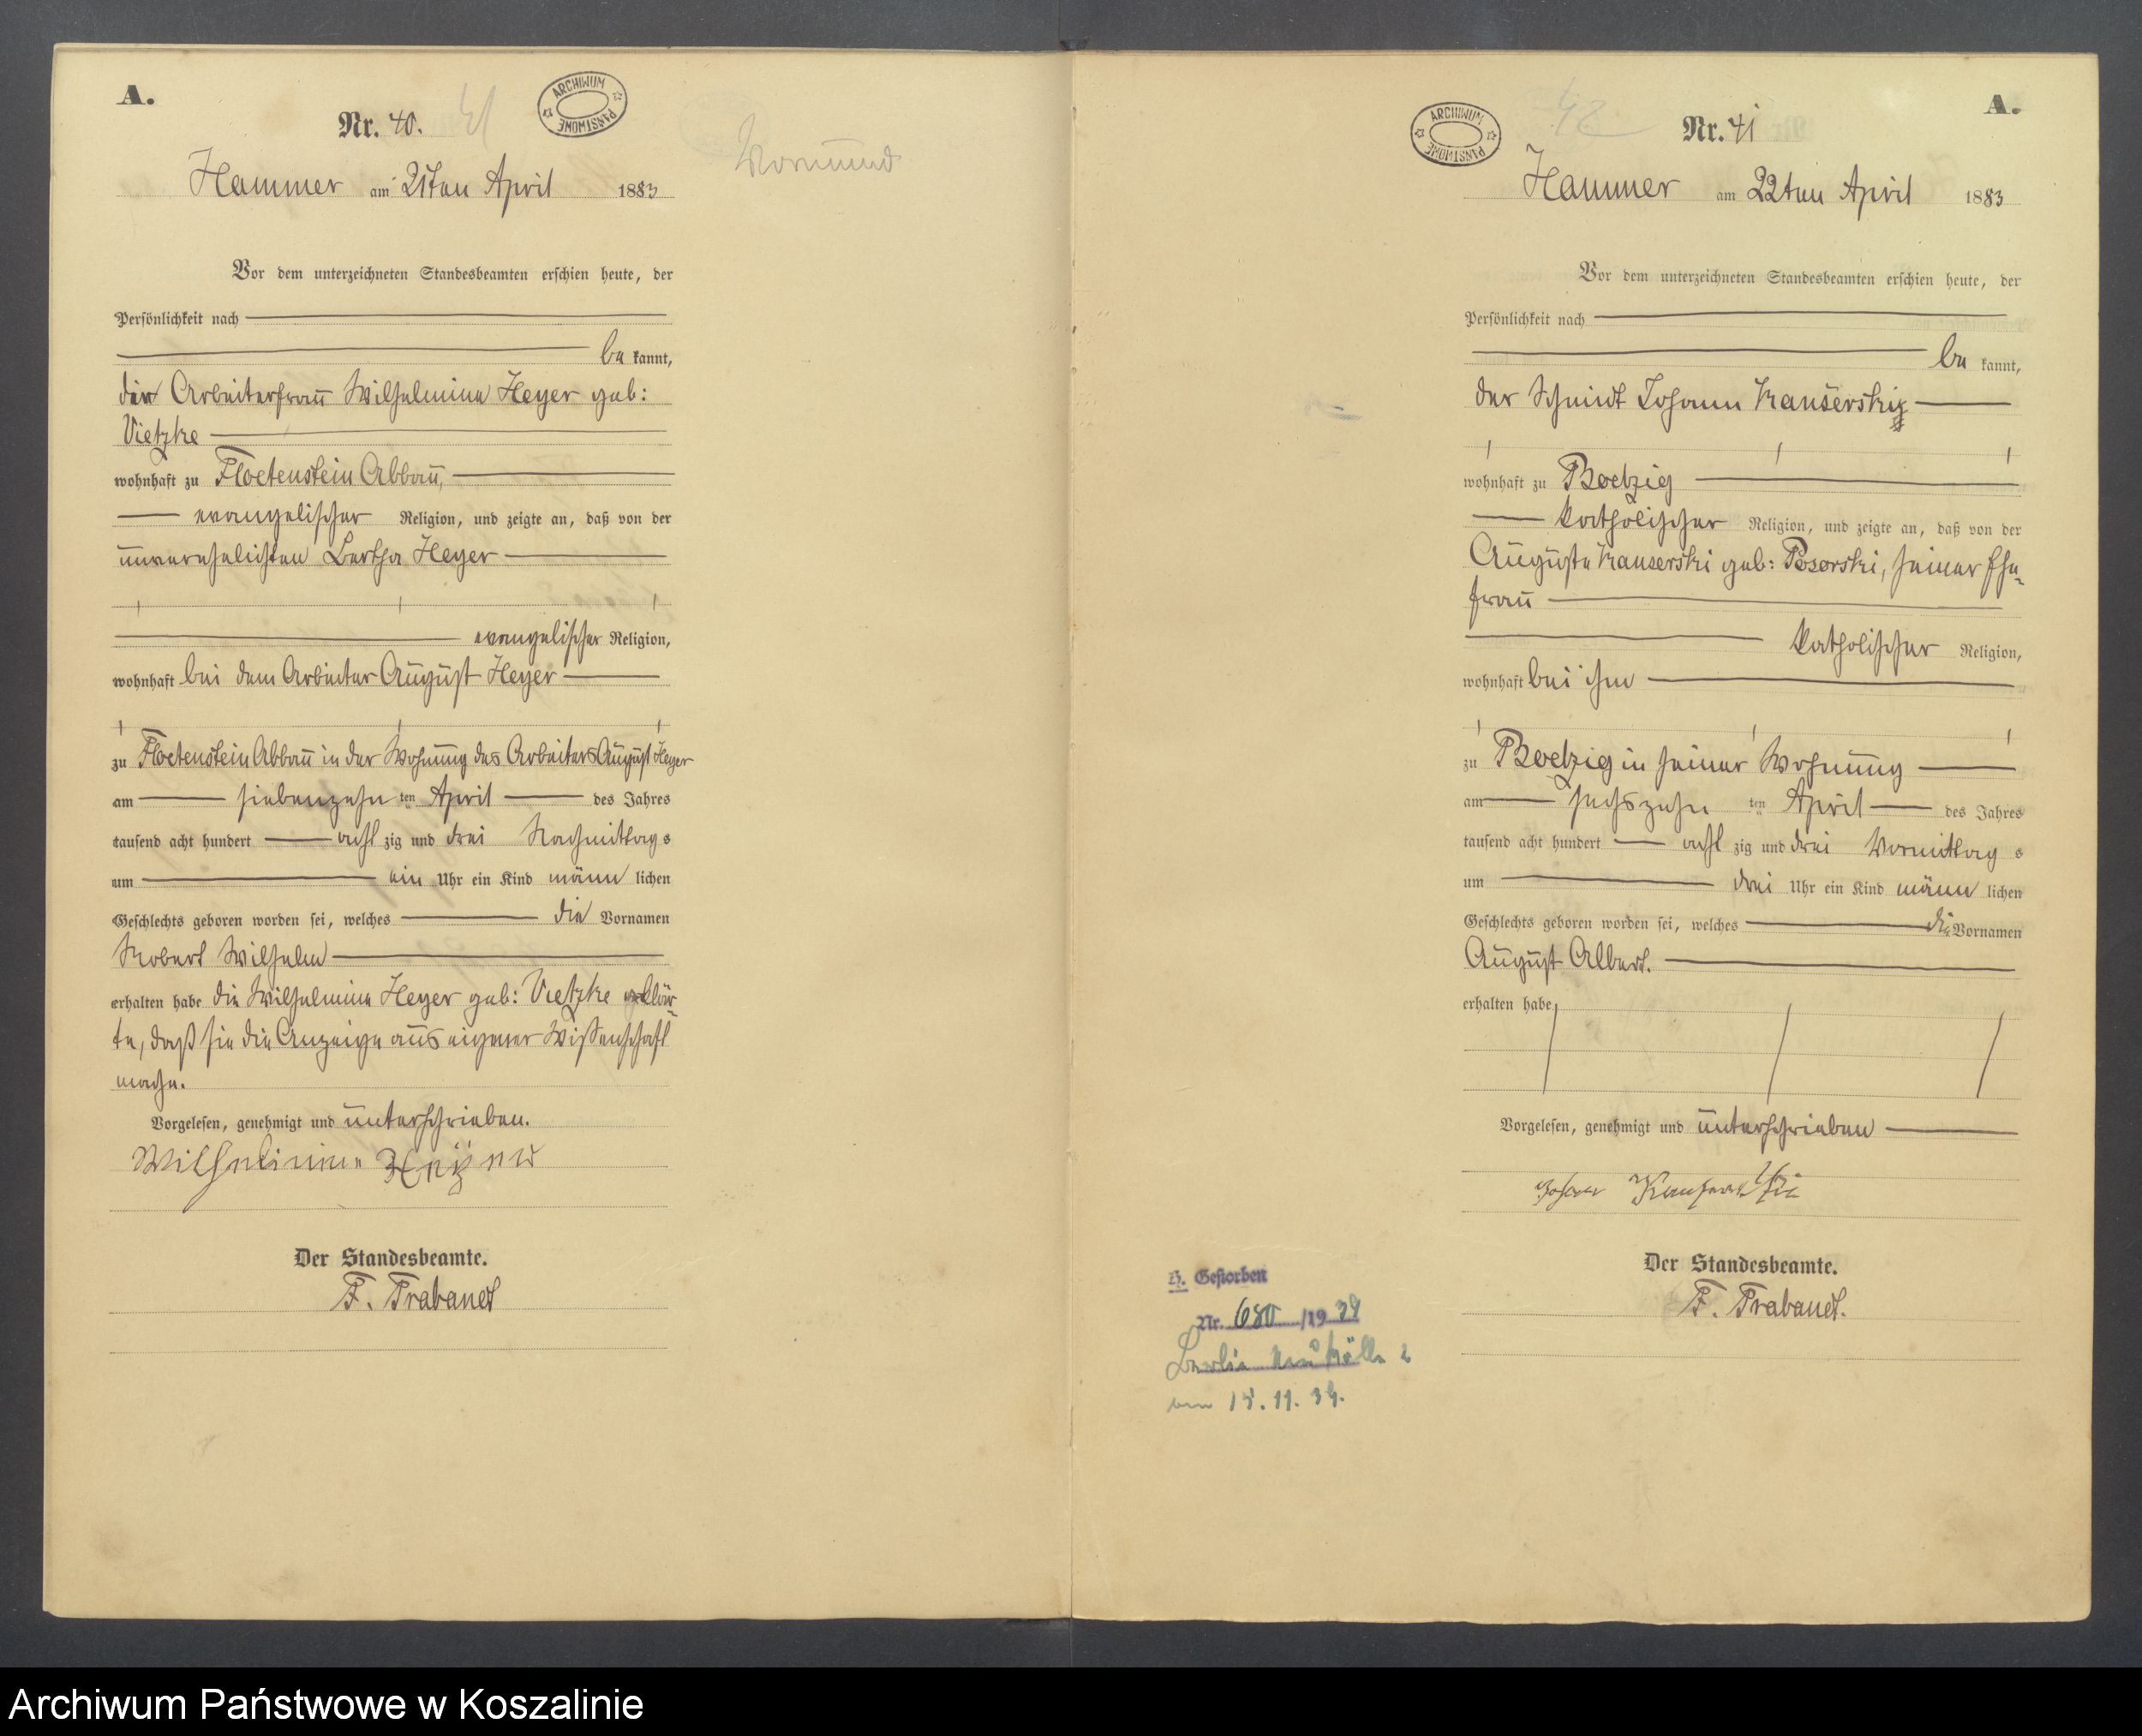 A.
Nr. 40.
41
ARCHIWUM PAŃSTWOWE
Vormund
Hammer am 21ten April 1883
Vor dem unterzeichneten Standesbeamten erschien heute, der
Persönlichkeit nach
be kannt,
die Arbeiterfrau Wilhelmine Heyer geb:
Vietzke
wohnhaft zu Floetenstein Abbau,
evangelischer Religion, und zeigte an, daß von der
unverehelichten Bertha Heyer
evangelischer Religion,
wohnhaft bei dem Arbeiter August Heyer
zu Floetenstein Abbau in der Wohnung des Arbeiters August Heyer
am siebenzehn ten April des Jahres
tausend acht hundert acht zig und drei Nachmittag s
um ein Uhr ein Kind männ lichen
Geschlechts geboren worden sei, welches die Vornamen
Robert Wilhelm
erhalten habe die Wilhelmine Heyer geb: Vietzke erklär-
te, daß sie die Anzeige aus eigener Wissenschaft
mache.
Vorgelesen, genehmigt und unterschrieben.
Wilhelmine
Der Standesbeamte.
F. Trabandt
A.
Nr. 41
42
ARCHIWUM PAŃSTWOWE
Hammer am 22ten April 1883
Vor dem unterzeichneten Standesbeamten erschien heute, der
Persönlichkeit nach
be kannt,
der Schmidt Johann Kauserski
wohnhaft zu Boelzig
katholischer Religion, und zeigte an, daß von der
Auguste Kauserski geb: Pesorski, seiner Ehe-
frau
katholischer Religion,
wohnhaft bei ihm
zu Boelzig in seiner Wohnung
am sechszehn ten April des Jahres
tausend acht hundert acht zig und drei Vormittag s
um drei Uhr ein Kind männ lichen
Geschlechts geboren worden sei, welches die Vornamen
August Albert.
erhalten habe
Vorgelesen, genehmigt und unterschrieben
Johann Kauserski
Der Standesbeamte.
F. Trabandt.
H. Gestorben
Nr. 680 /19 39
Berlin Neukölln 2
vom 15.11.39.
Archiwum Państwowe w Koszalinie